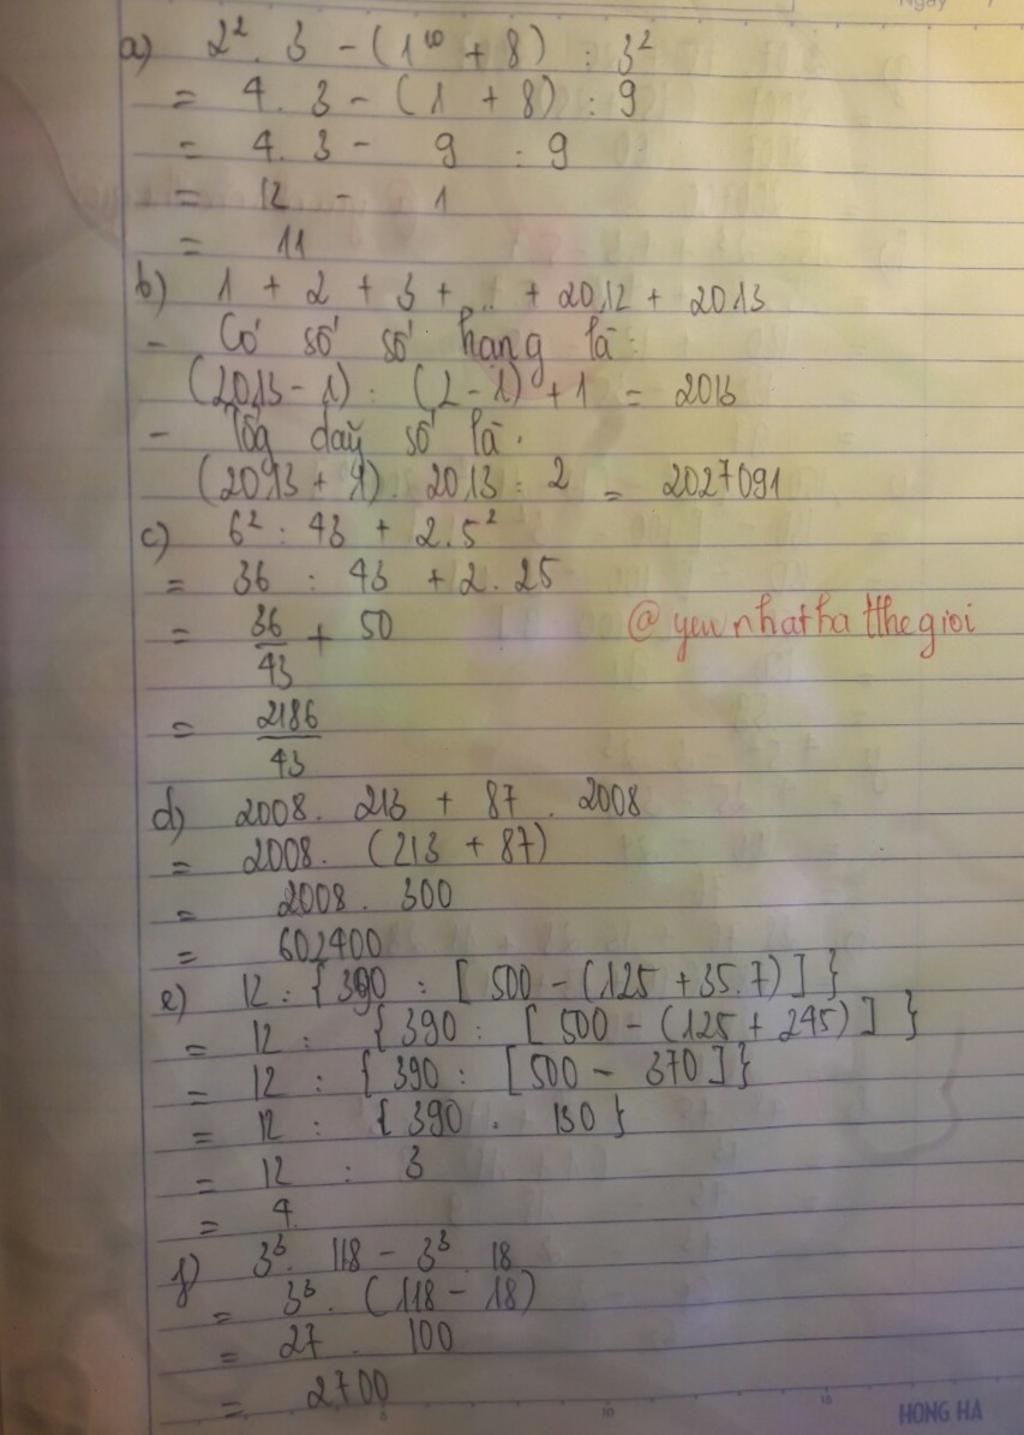 Ngày
a) 2². 3 - (1¹⁰ + 8) : 3²
= 4. 3 - (1 + 8) : 9
= 4. 3 - 9 : 9
= 12 - 1
= 11
b) 1 + 2 + 3 + ... + 2012 + 2013
- Có số số hang là:
(2013 - 1) : (2 - 1) + 1 = 2013
- Tổg daỹ số là.
(2013 + 1). 2013 : 2 = 2027091
c) 6² : 43 + 2.5²
= 36 : 43 + 2. 25
= 36/43 + 50
@ yeu nhat ha tthe gioi
= 2186/43
d) 2008. 213 + 87 . 2008
= 2008. (213 + 87)
= 2008. 300
= 602400
e) 12 : { 390 : [ 500 - (125 + 35.7) ] }
= 12 : { 390 : [ 500 - (125 + 245) ] }
= 12 : { 390 : [ 500 - 370 ] }
= 12 : { 390 . 130 }
= 12 : 3
= 4
f) 3³. 118 - 3³. 18
= 3³. (118 - 18)
= 27 . 100
= 2700
10 15
HONG HA